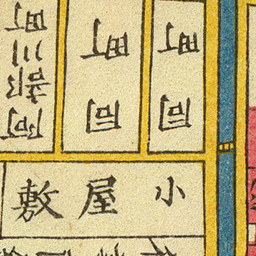 阿部川町
同町
同町
小屋敷